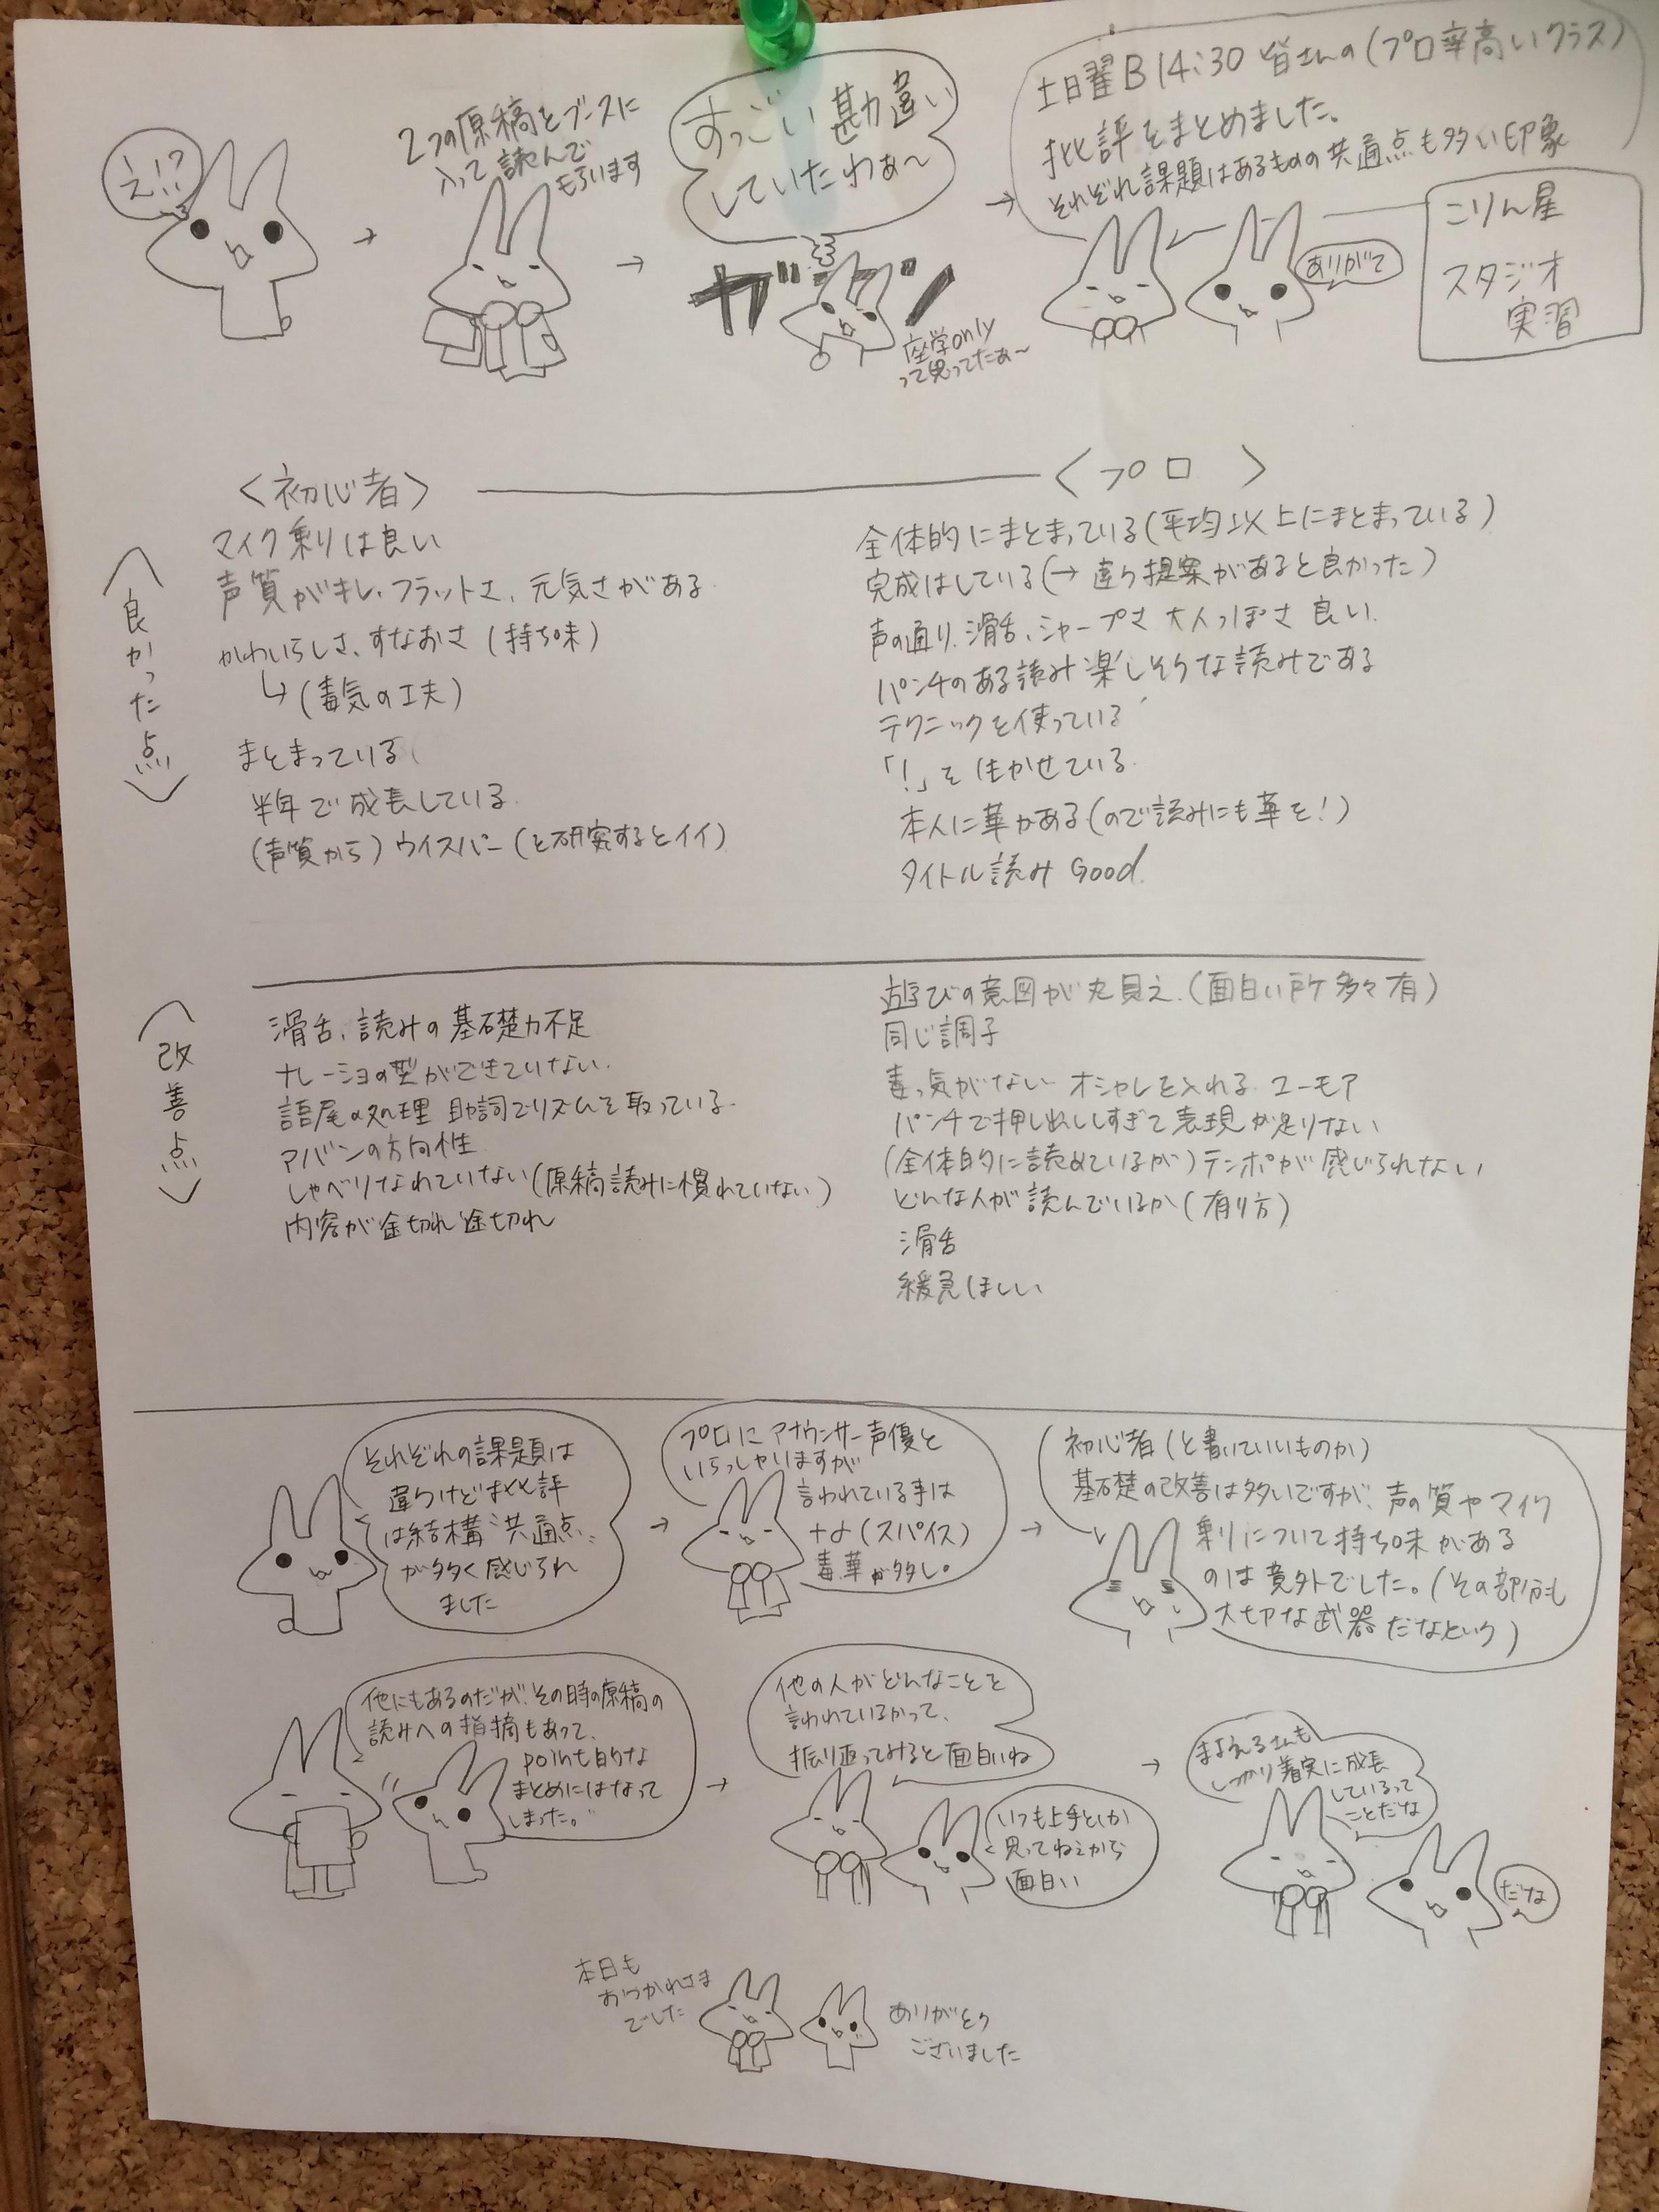 え!?
2つの原稿をブースに
入って読んで
もらいます
すっごい勘違い
していたわぁ〜
ガーン
座学only
って思ってたぁ〜
土日曜B14:30 皆さんの(プロ率高いクラス)
批評をまとめました。
それぞれ課題はあるものの共通点も多い印象
ありがて
こりん星
スタジオ
実習
〈初心者〉
〈プロ〉
〈良かった点〉
マイク乗りは良い
声質がキレ、フラットさ、元気さがある
かわいらしさ、すなおさ(持ち味)
↳(毒気の工夫)
まとまっている
半年で成長している
(声質から)ウイスパー(を研究するとイイ)
全体的にまとまっている(平均以上にまとまっている)
完成はしている(→違う提案があると良かった)
声の通り、滑舌、シャープさ 大人っぽさ 良い
パンチのある読み 楽しそうな読みである
テクニックを使っている
「!」を生かせている
本人に華がある(ので読みにも華を!)
タイトル読み Good
〈改善点〉
滑舌、読みの基礎力不足
ナレーショの型ができていない
語尾の処理 助詞でリズムを取っている
アバンの方向性
しゃべりなれていない(原稿読みに慣れていない)
内容が途切れ途切れ
遊びの意図が丸見え(面白い所多々有)
同じ調子
毒っ気がない オシャレを入れる ユーモア
パンチで押し出ししすぎて表現が足りない
(全体的に読めているが)テンポが感じられない
どんな人が読んでいるか(有り方)
滑舌
緩急ほしい
それぞれの課題は
違うけど批評
は結構〝共通点〟
が多く感じられ
ました
プロにアナウンサー声優と
いらっしゃいますが
言われている事は
+α(スパイス)
毒、華が多し。
初心者(と書いていいものか)
基礎の改善は多いですが、声の質やマイク
乗りについて持ち味がある
のは意外でした。(その部分も
大切な武器だなという)
他にもあるのだが、その時の原稿の
読みへの指摘もあって、
point的な
まとめにはなって
しまった。
他の人がどんなことを
言われているかって、
振り返ってみると面白いね
いつも上手としか
思ってねぇから
面白い
まよえるさんも
しっかり着実に成長
しているって
ことだな
だな
本日も
おつかれさま
でした
ありがとう
ございました